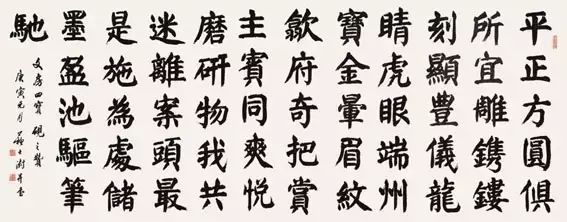 平正方圓俱
所宜雕鎸鏤
刻顯豊儀龍
睛虎眼端州
寶金暈眉紋
歙府奇把賞
主賓同爽悦
磨研物我共
迷離案頭最
是施為處儲
墨盈池驅筆
馳
文房四寶硯之贊
庚寅元月蘇士澍并書